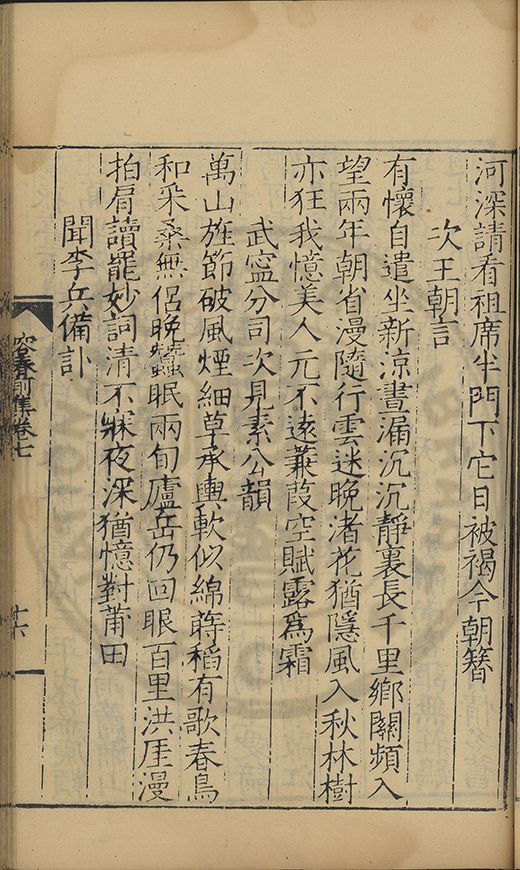 河深請看祖席半門下它日被褐今朝簪
次王朝言
有懷自遣坐新涼晝漏沉沉靜裏長千里鄉關頻入
望兩年朝省漫隨行雲迷晚渚花猶隱風入秋林樹
亦狂我憶美人元不遠蒹葭空賦露爲霜
武寍分司次見素公韻
萬山旌節破風煙細草承輿軟似綿蒔稻有歌春鳥
和采桑無侶晚蠶眠兩旬廬岳仍回眼百里洪厓漫
拍肩讀罷妙詞清不寐夜深猶憶對莆田
聞李兵備訃
容春前集卷七
十六